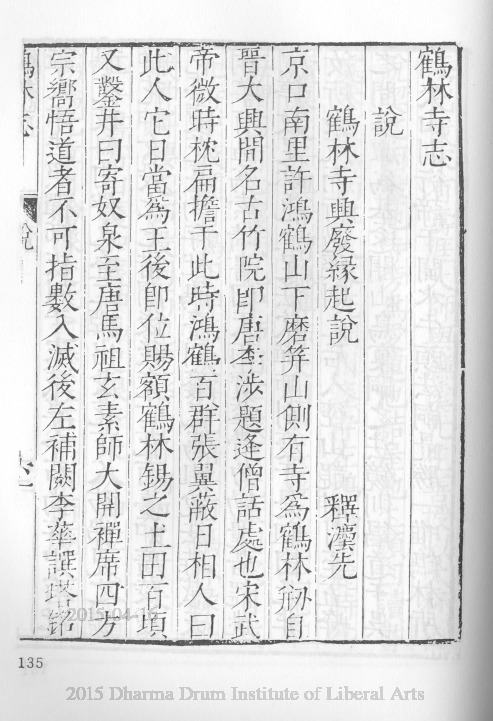 鶴林寺志
說
鶴林寺興廢緣起說
釋澐先
京口南里許鴻鶴山下磨筓山側有寺為鶴林剏自
晉大興開名古竹院即唐李涉題逢僧話處也宋武
帝微時枕扁擔于此時鴻鶴百群張翼蔽日相人曰
此人它日當為王後即位賜額鶴林錫之土田百頃
又鑿井曰寄奴泉至唐馬祖玄素師大開禪席四方
宗嚮悟道者不可指數入滅後左補闕李華譔塔銘
說
135
2015-04-16
2015 Dharma Drum Institute of Liberal Arts